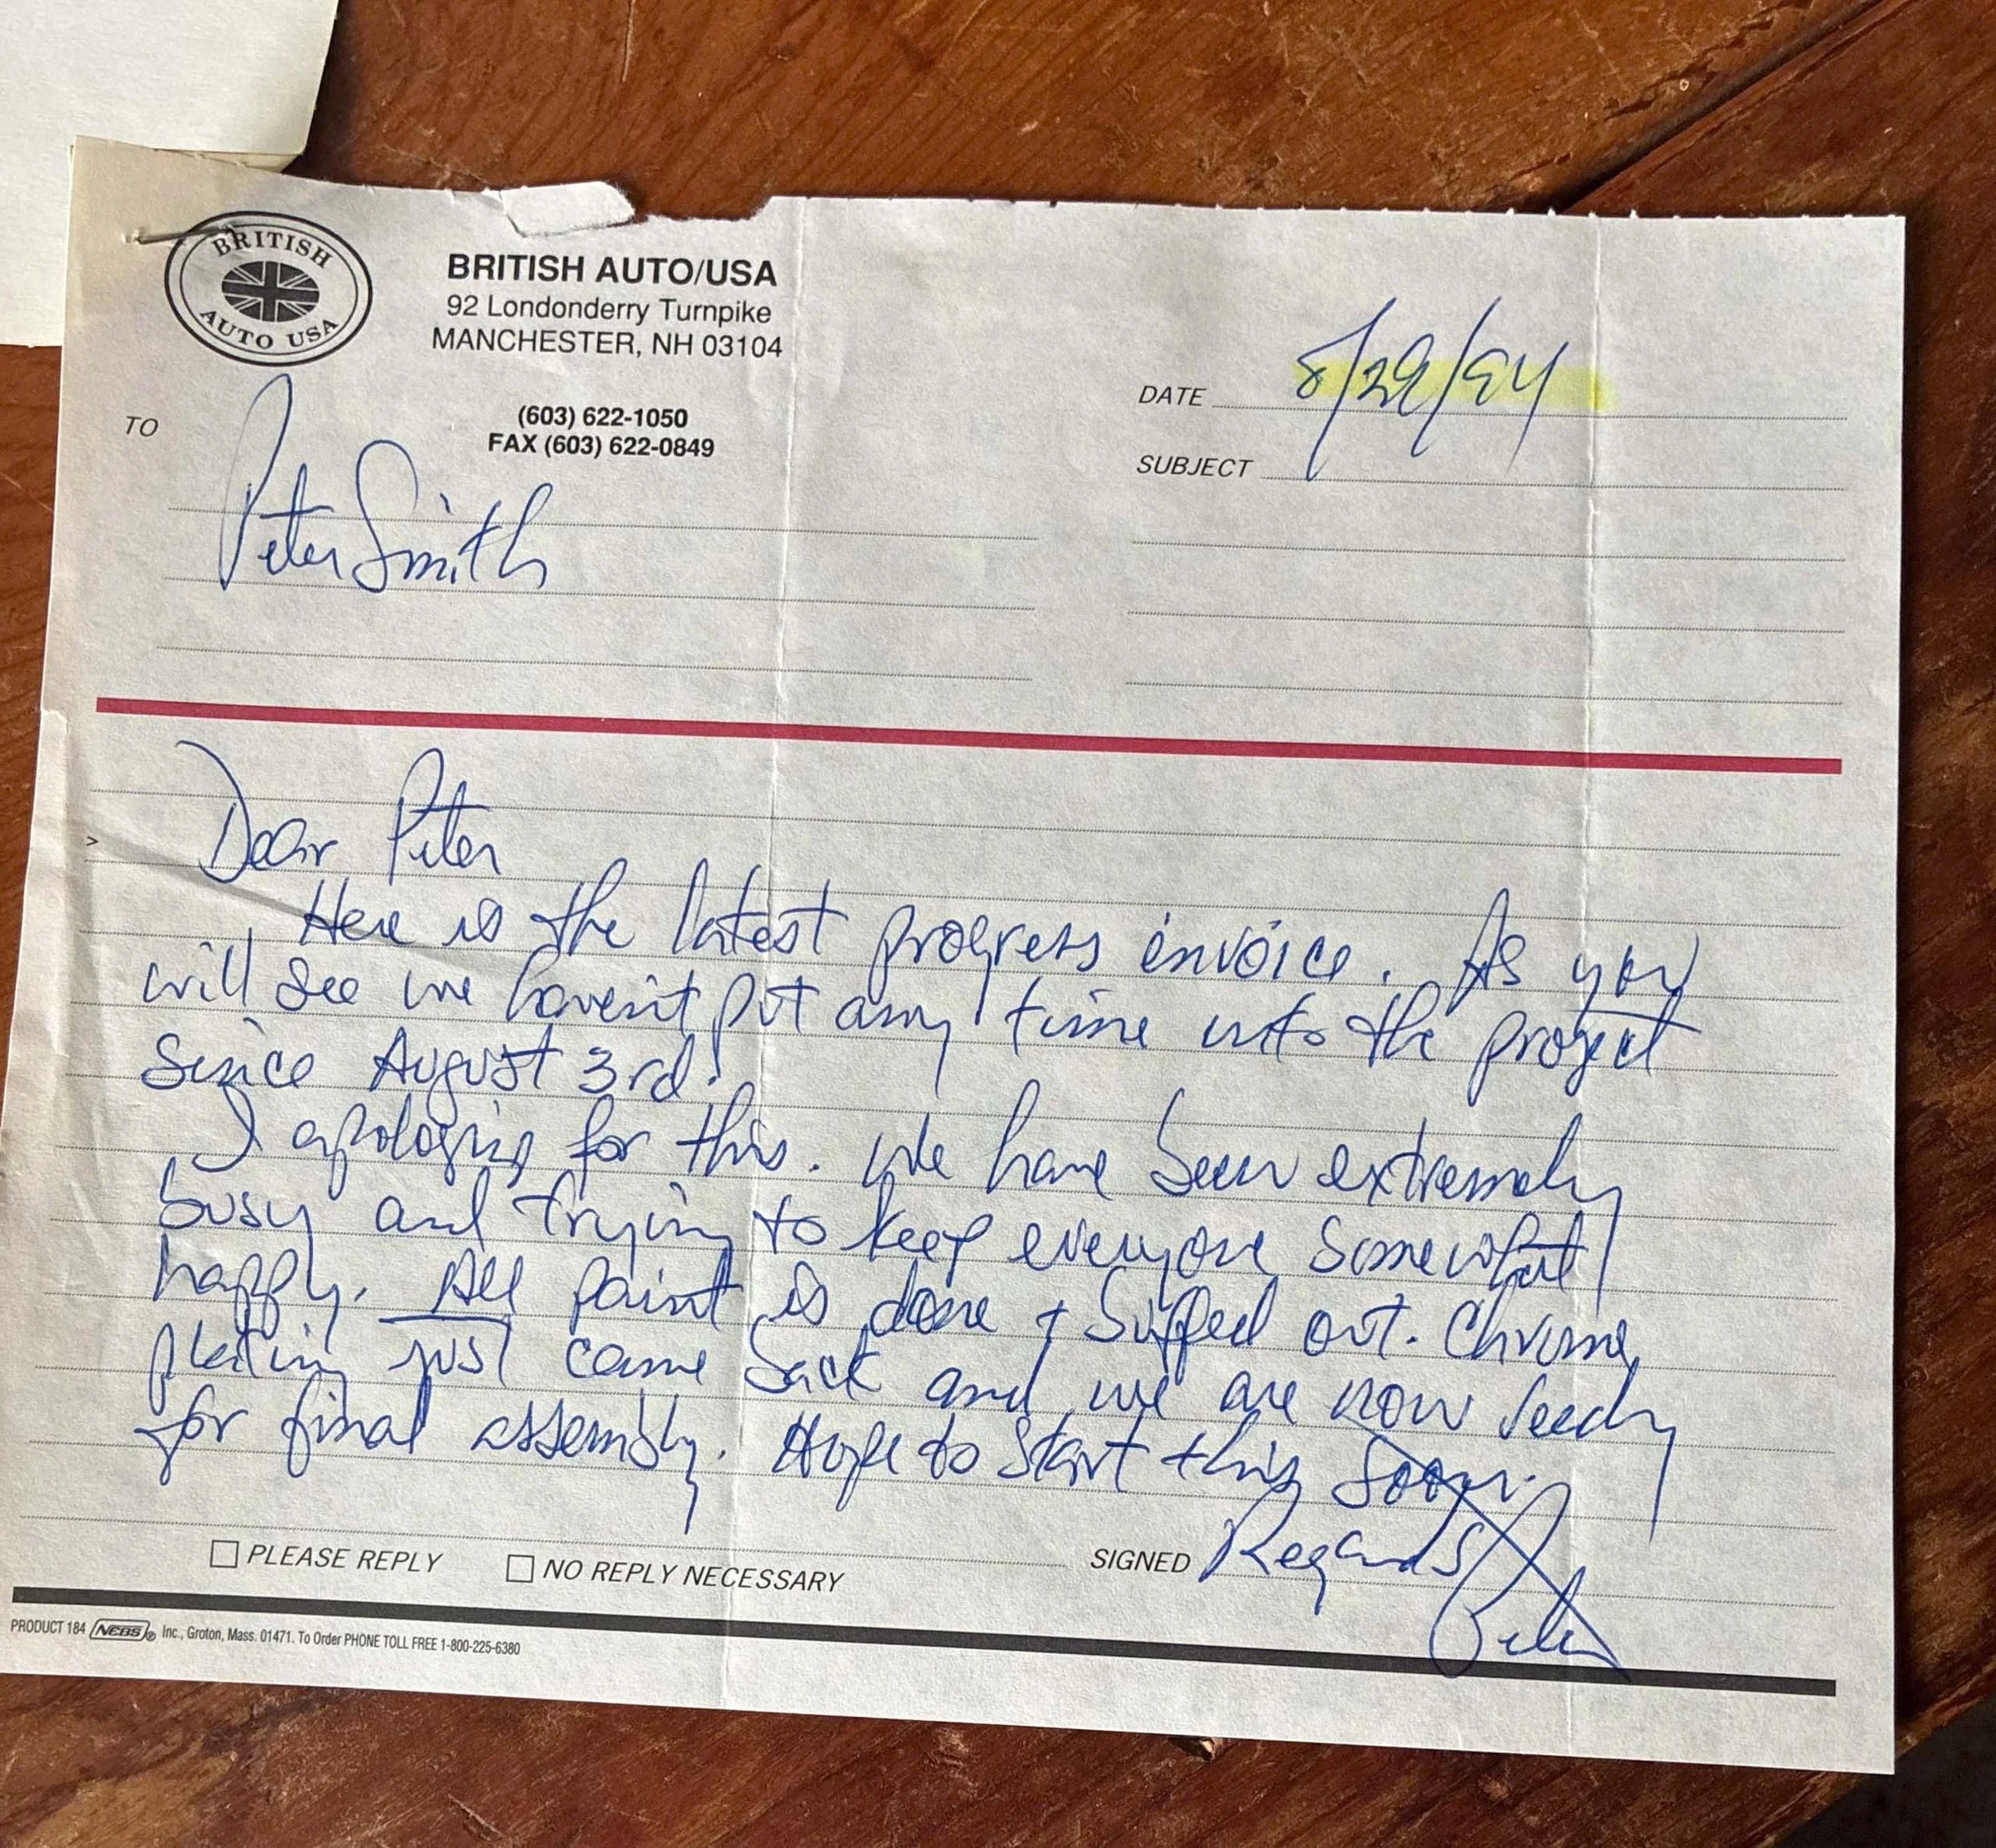 BRITISH
AUTO USA
BRITISH AUTO/USA
92 Londonderry Turnpike
MANCHESTER, NH 03104
(603) 622-1050
FAX (603) 622-0849
DATE 8/29/94
SUBJECT
TO
Peter Smith
>
Dear Peter
Here is the latest progress invoice. As you
will see we haven't put any time into the project
since August 3rd!
I apologize for this. We have been extremely
busy and trying to keep everyone somewhat
happy. All paint is done + buffed out. Chrome
plating just came back and we are now ready
for final assembly. Hope to start this soon.
PLEASE REPLY NO REPLY NECESSARY
SIGNED Regards
PRODUCT 184 NEBS ® Inc., Groton, Mass. 01471. To Order PHONE TOLL FREE 1-800-225-6380